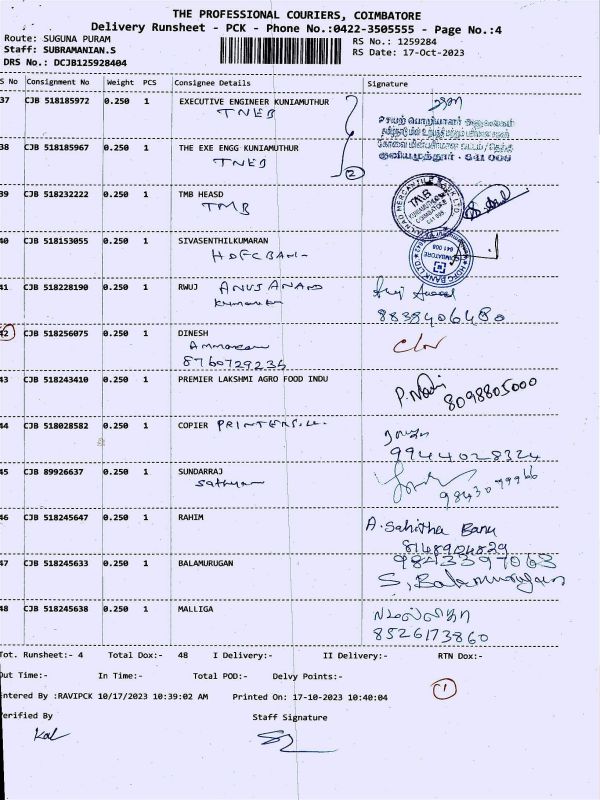 THE PROFESSIONAL COURIERS, COIMBATORE
Delivery Runsheet - PCK - Phone No.:0422-3505555 - Page No.:4
Route: SUGUNA PURAM
Staff: SUBRAMANIAN.S
DRS No.: DCJB125928404
RS No.: 1259284
RS Date: 17-Oct-2023
S No Consignment No Weight PCS Consignee Details Signature
37 CJB 518185972 0.250 1 EXECUTIVE ENGINEER KUNIAMUTHUR
TNEB
38 CJB 518185967 0.250 1 THE EXE ENGG KUNIAMUTHUR
TNEB
2
குனியமுத்தூர் - 641 008
39 CJB 518232222 0.250 1 TMB HEASD
TMB
TMB
40 CJB 518153055 0.250 1 SIVASENTHILKUMARAN
HDFC BANK
HDFC BANK LTD
COIMBATORE
641 008
41 CJB 518228190 0.250 1 RWUJ ANUS ANAND
8838406480
42 CJB 518256075 0.250 1 DINESH
8760729234
43 CJB 518243410 0.250 1 PREMIER LAKSHMI AGRO FOOD INDU
8098805000
44 CJB 518028582 0.250 1 COPIER PRINTERS
9944028324
45 CJB 89926637 0.250 1 SUNDARRAJ
Sathyam
9843079966
46 CJB 518245647 0.250 1 RAHIM A. Sahitha Banu
8148924829
47 CJB 518245633 0.250 1 BALAMURUGAN 9843397063
S. Balamurugan
48 CJB 518245638 0.250 1 MALLIGA மல்லிகா
8526173860
Tot. Runsheet:- 4 Total Dox:- 48 I Delivery:- II Delivery:- RTN Dox:-
Out Time:- In Time:- Total POD:- Delvy Points:-
1
Entered By :RAVIPCK 10/17/2023 10:39:02 AM Printed On: 17-10-2023 10:40:04
Verified By Staff Signature